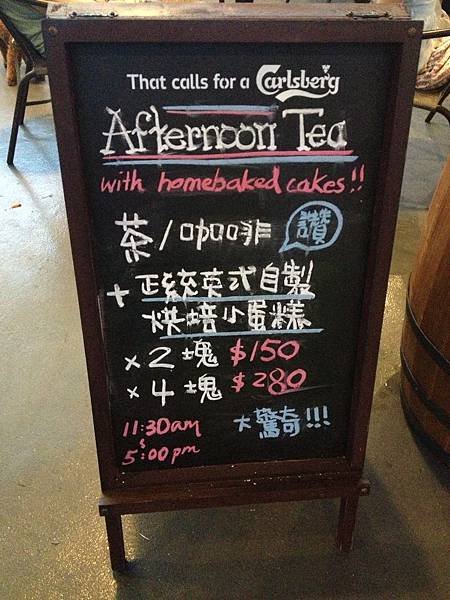 That calls for a Carlsberg
Afternoon Tea
with homebaked cakes!!
茶/咖啡 讚
+ 正統英式自製
烘焙小蛋糕
x2塊 $150
x4塊 $280
11:30am
5:00pm
大驚奇!!!